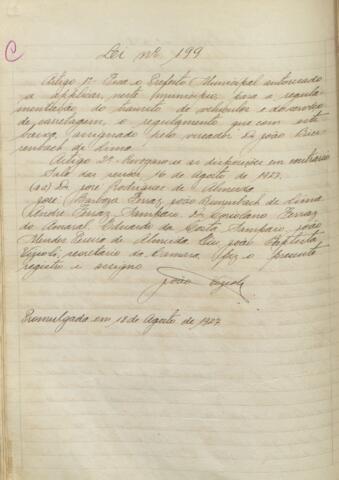 C
Lei nº 199
Artigo 1º Fica o Prefeito Municipal autorizado
a applicar, neste municipio, para a regula
mentação do transito de vehiculos e do serviço
de carretagem, o regulamento que com este
baixa, assignado pelo vereador Dr João Bier
renbach de Lima.
Artigo 2º Revogam-se as disposições em contrario
Sala das sessões, 16 de Agosto de 1927.
(aa) Dr José Rodrigues de Almeida
José Barboza Ferraz, João Bierrenbach de Lima
André Ferraz Sampaio, Dr Coriolano Ferraz
do Amaral, Eduardo da Costa Sampaio, João
Mendes Pereira de Almeida. Eu, João Baptista
Vizioli, secretario da Camara, fiz o presente
registro e assigno
João Vizioli
Promulgado em 18 de Agosto de 1927